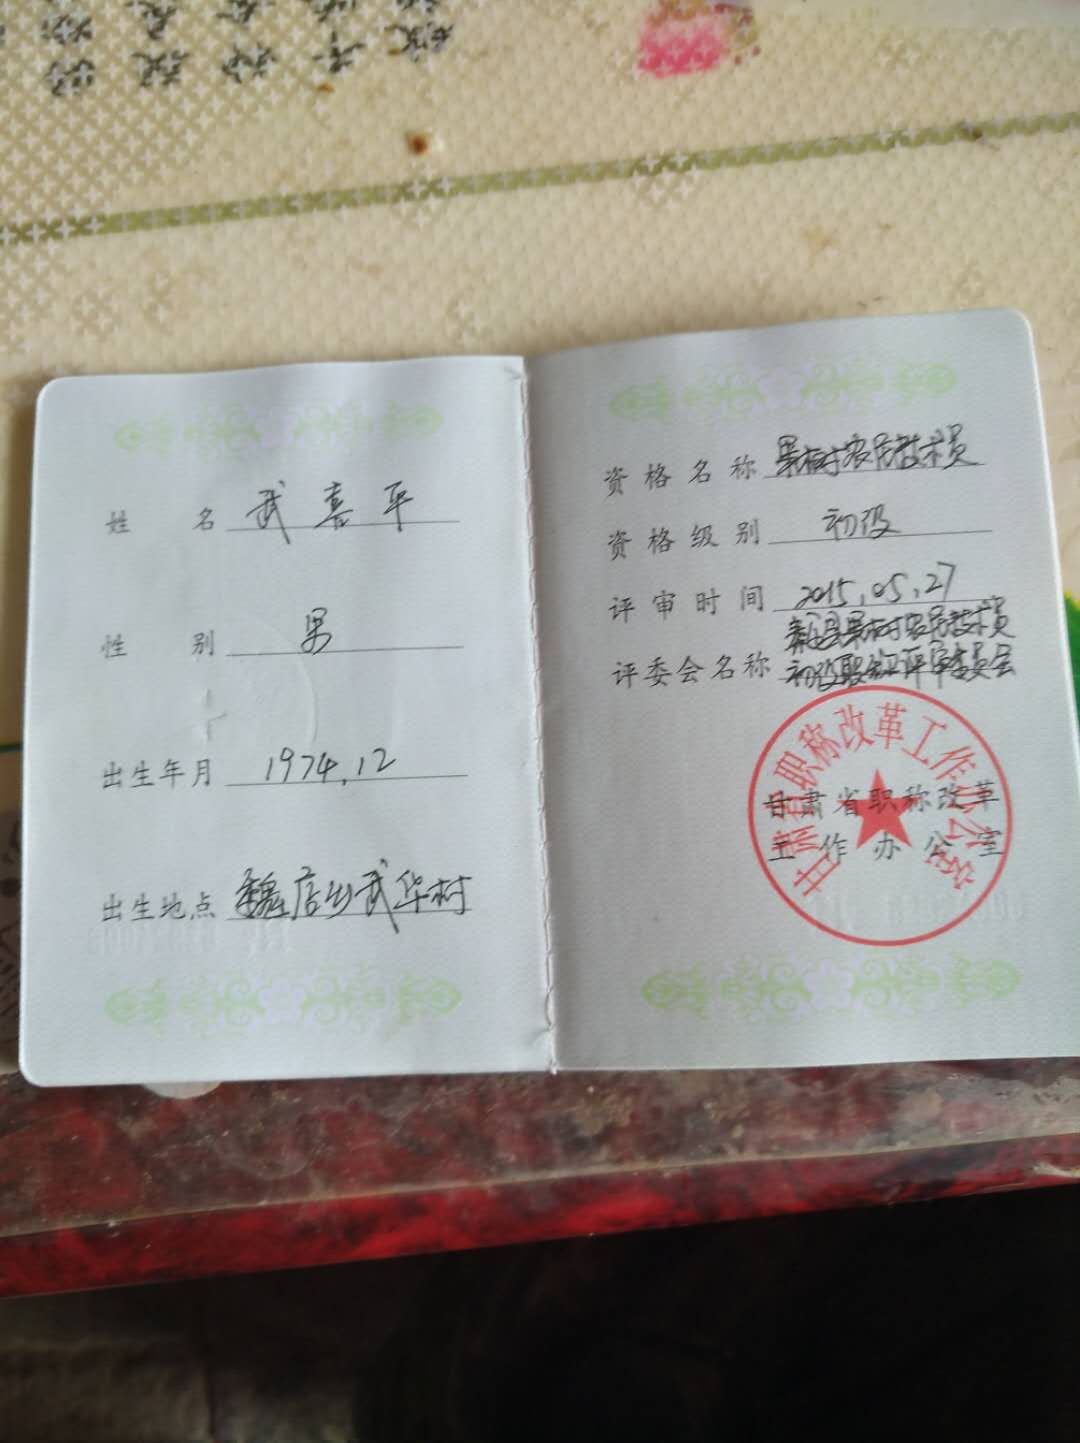 姓 名 武喜平
性 别 男
出生年月 1974.12
出生地点 魏店乡武华村
资格名称 果树农民技术员
资格级别 初级
评审时间 2015.05.27
评委会名称 秦安县果树农民技术员
初级职称评审委员会
甘肃省职称改革工作办公室
甘肃省职称改革
工作办公室